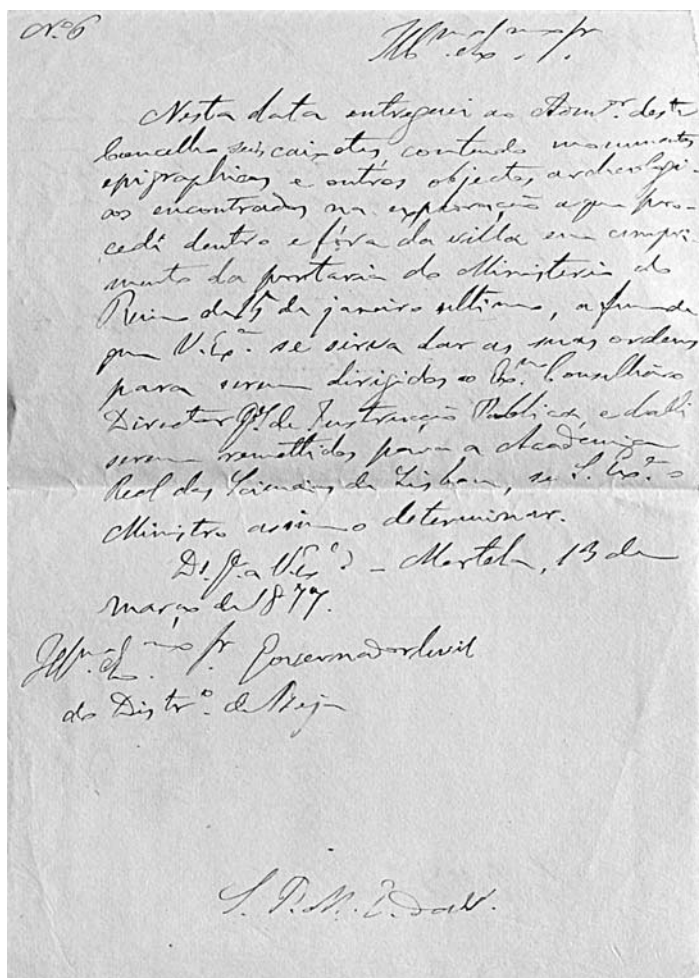 Nº 6
Ill.mo e Ex.mo Sr.
Nesta data entreguei ao Adm.or deste
Concelho seis caixotes, contendo monumentos
epigraphicos e outros objectos archeologi-
cos encontrados na exploração a que pro-
cedi dentro e fóra da villa em cumpri-
mento da portaria do Ministerio do
Reino de 15 de janeiro ultimo, a fim de
que V. Ex.a se sirva dar as suas ordens
para serem dirigidos ao Ex.mo Conselheiro
Director G.al de Instrucção Publica, e dali
serem remettidos para a Academia
Real das Sciencias de Lisboa, se S. Ex.a o
Ministro assim o determinar.
D.s G.e a V. Ex.a - Mertola, 13 de
março de 1877.
Ill.mo e Ex.mo Sr. Governador Civil
do Distr.o de Beja
S. P. M. E. da V.